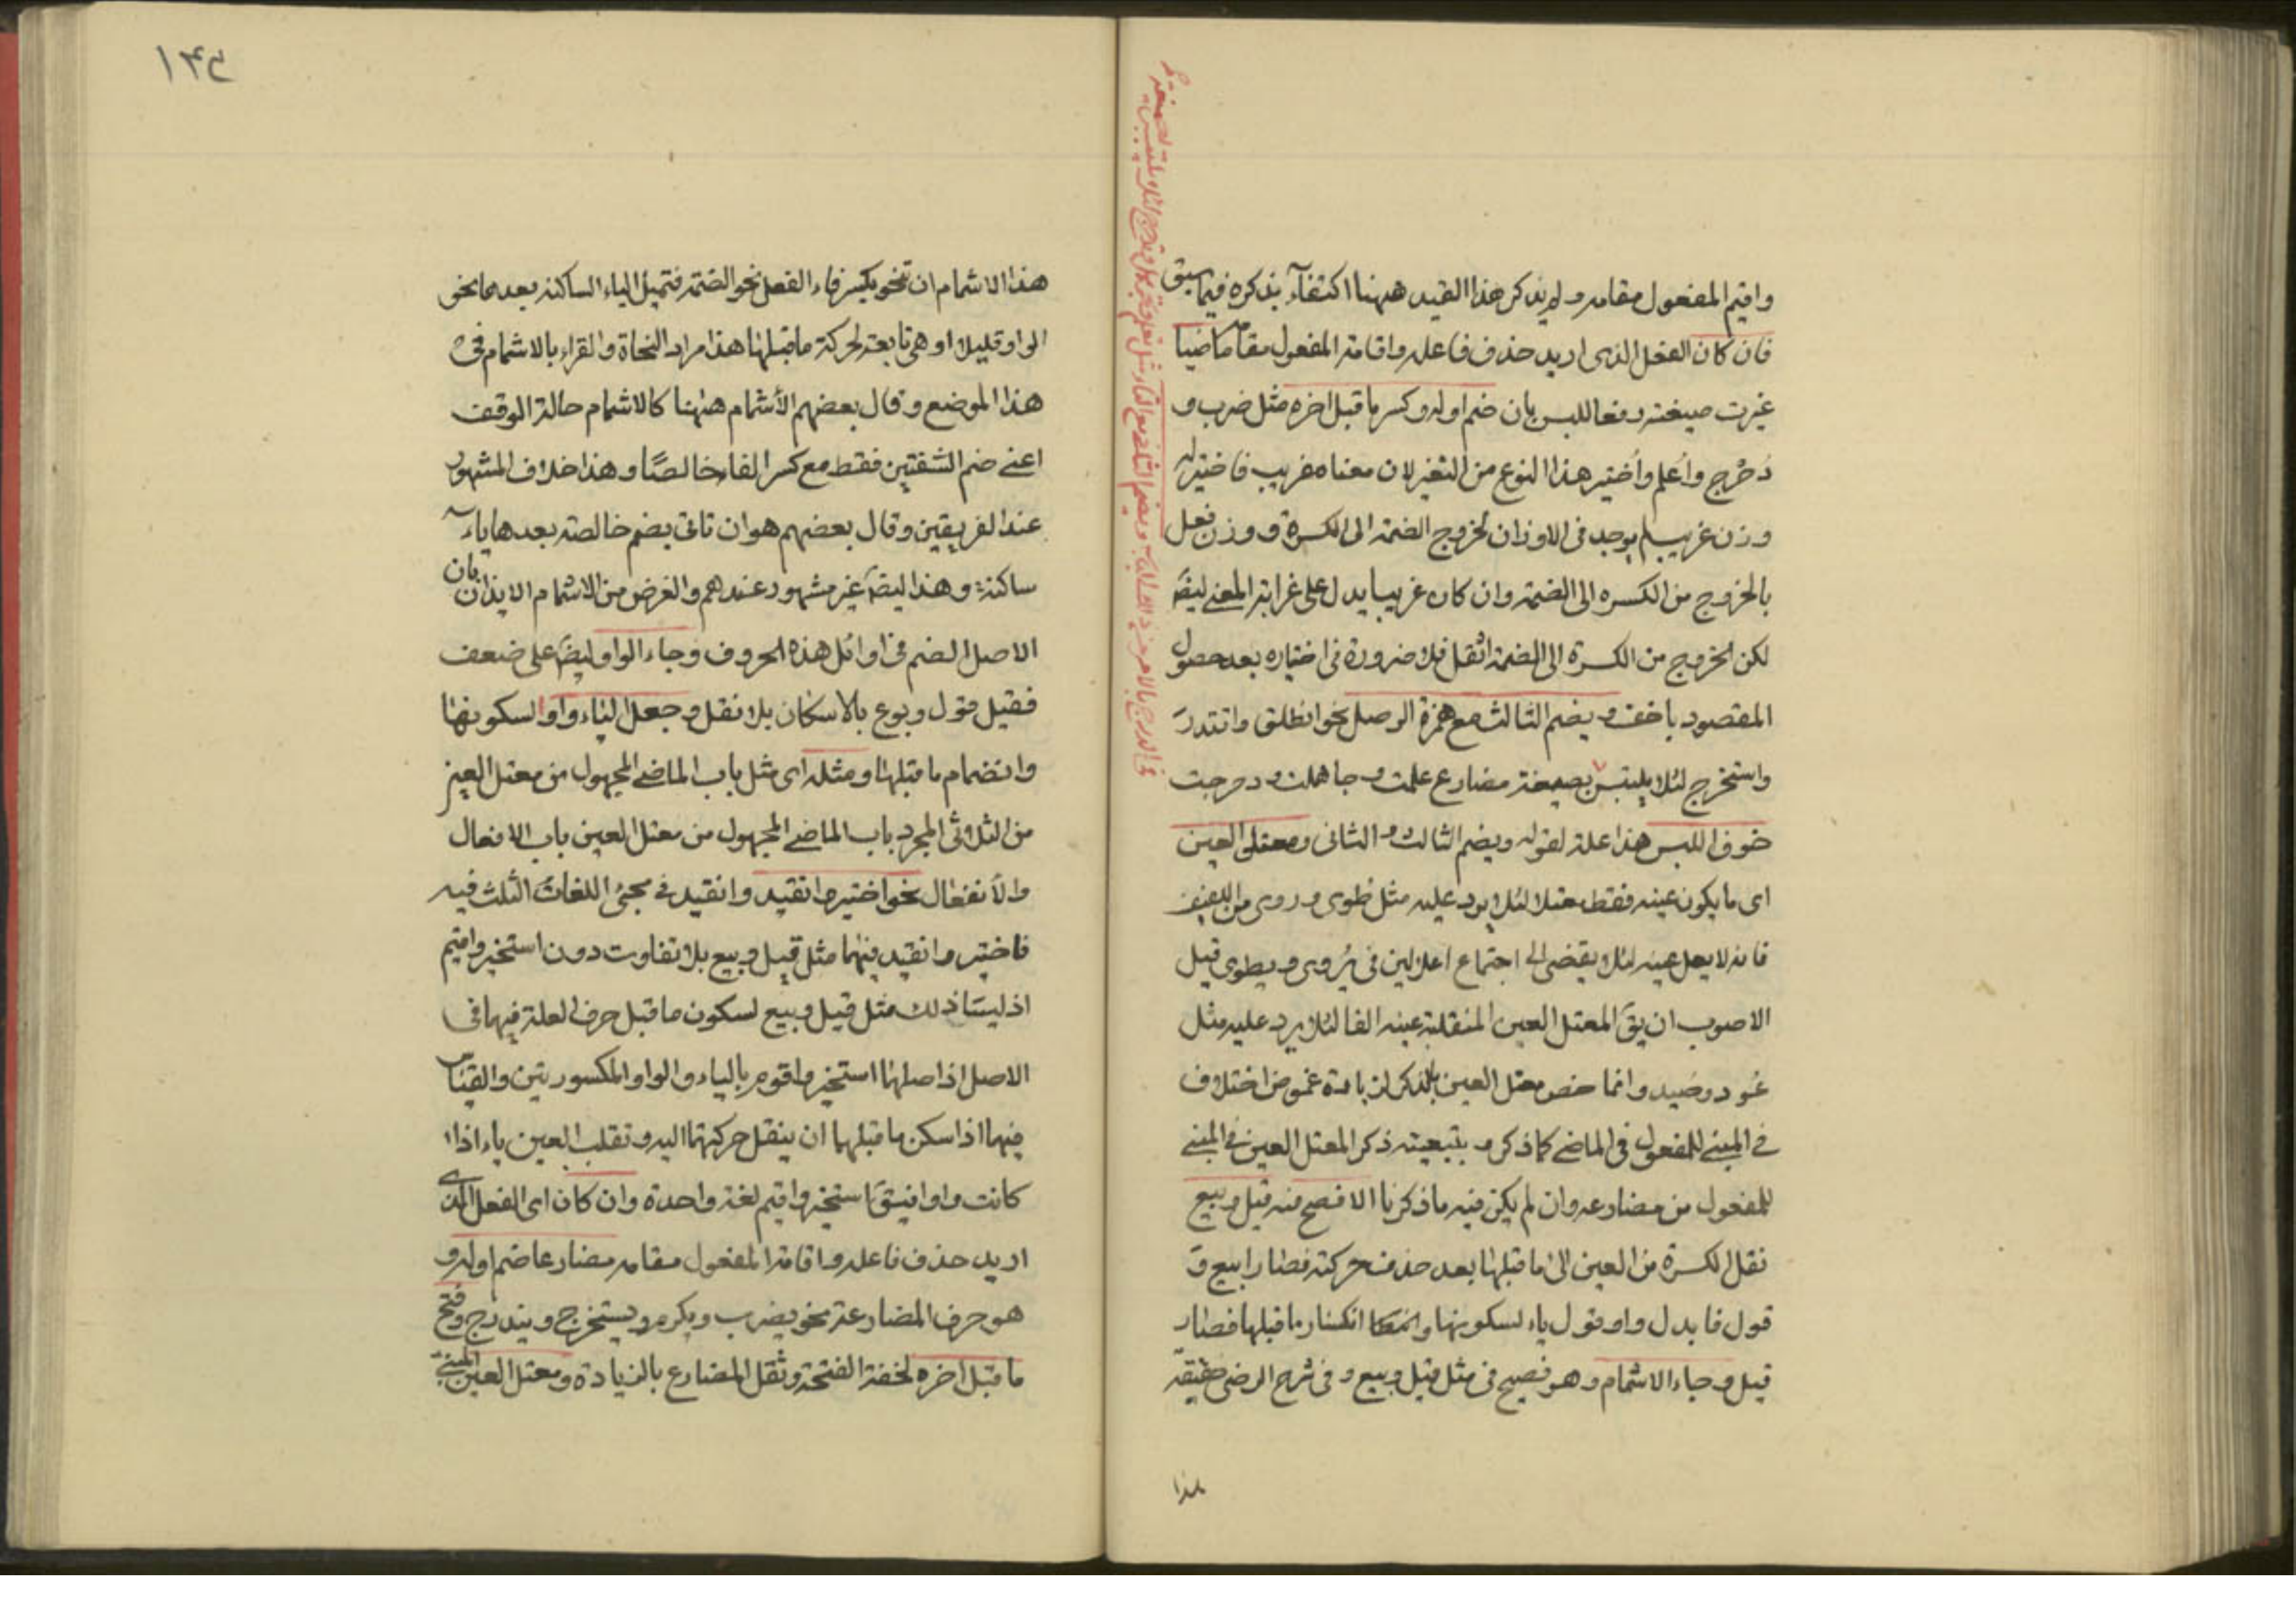 واقيم المفعول مقامه ولم يذكر هذا القيد ههنا اكتفآء بذكره فيما سبق
فان كان الفعل الذى اريد حذف فاعله واقامة المفعول مقامه ماضيا
غيرت صيغته دفعا للبس بان ضم اوله وكسر ما قبل اخره مثل ضرب و
دُحْرج واُعلم واُختير هذا النوع من التغير لان معناه غريب فاختير له
وزن غريب لم يوجد فى الاوزان لخروج الضمة الى الكسرة ووزن فعل
بالخروج من الكسره الى الضمة وان كان غريبا يدل على غرابة المعنے ايضً
لكن الخروج من الكسرة الى الضمة اثقل فلا ضرورة فى اختياره بعد حصول
المقصود باخف ويضم الثالث مع همزة الوصل نحو انطلق واقتدر
واستخرج لئلا يلتبس بصيغة مضارع علمت وجاهلت ودحرجت
خوف اللبس هذا علة لقوله ويضم الثالث والثانى ومعتل العين
اى ما يكون عينه فقط معتلا لئلا يرد عليه مثل طوى وروى من اللفيف
فانه لا يعل عينه لئلا يفضى الى اجتماع اعلالين فى يُروى ويطوى قيل
الاصوب ان يقَ المعتل العين المنقلبة عينه الفا لئلا يرد عليه مثل
عُود وصُيد وانما خص معتل العين بالذكر لزيادة غموض اختلاف
فے المبنے للمفعول فى الماضے كما ذكر وبتبعيته ذكر المعتل العين فے المبنے
للمفعول من مضارعه وان لم يكن فيه ما ذكرنا الافصح فيه قيل وبيع
نقل الكسرة من العين الى ما قبلها بعد حذف حركته فصار ابيع وَ
قول فابدل واو قول ياء لسكونها وانكسار ما قبلها فصار
قيل وجاء الاشمام وهو فصيح فى مثل قيل وبيع وفى شرح الرضى حقيقة
هذا
١٤٥
هذا الاشمام ان تنحو بكسر فاء الفعل نحو الضمة فتميل الياء الساكنة بعدها نحو
الواو قليلا اذ هى تابعة لحركة ما قبلها هذا مراد النحاة والقراء بالاشمام فى
هذا الموضع وقال بعضهم الأشمام ههنا كالاشمام حالة الوقف
اعنے ضم الشفتين فقط مع كسر الفاء خالصًا وهذا خلاف المشهور
عند الفريقين وقال بعضهم هو ان تاتى بضم خالصة بعدها ياء
ساكنة وهذا ايضً غير مشهور عندهم والغرض من الاشمام الايذان بان
الاصل الضم فى اوائل هذه الحروف وجاء الواو ايضً على ضعف
فقيل قول وبوع بالاسكان بلا نقل وجعل الياء واوا لسكونها
وانضمام ما قبلها ومثله اى مثل باب الماضے المجهول من معتل العين
من الثلاثى المجرد باب الماضے المجهول من معتل العين باب الافتعال
والأنفعال نحو اختير وانقيد وانقيد فے مجئ اللغات الثلث فيه
فاختير وانقيد فيهما مثل قيل وبيع بلا تفاوت دون استخير واقيم
اذ ليسَا ذلك مثل قيل وبيع لسكون ما قبل حرف العلة فيها فى
الاصل اذ اصلهما استخير واقوم بالياء والواو المكسورتين والقياس
فيهما اذا سكن ما قبلهما ان ينقل حركتهما اليه وتقلب العين ياء اذا
كانت واوا فيبقى استخير واقيم لغة واحدة وان كان اى الفعل الذى
اريد حذف فاعله واقامة المفعول مقامه مضارعا ضم اوله و
هو حرف المضارعة نحو يضرب ويكرم ويستخرج ويتدحرج وفتح
ما قبل اخره لخفة الفتحة وثقل المضارع بالزيادة ومعتل العين المبنے